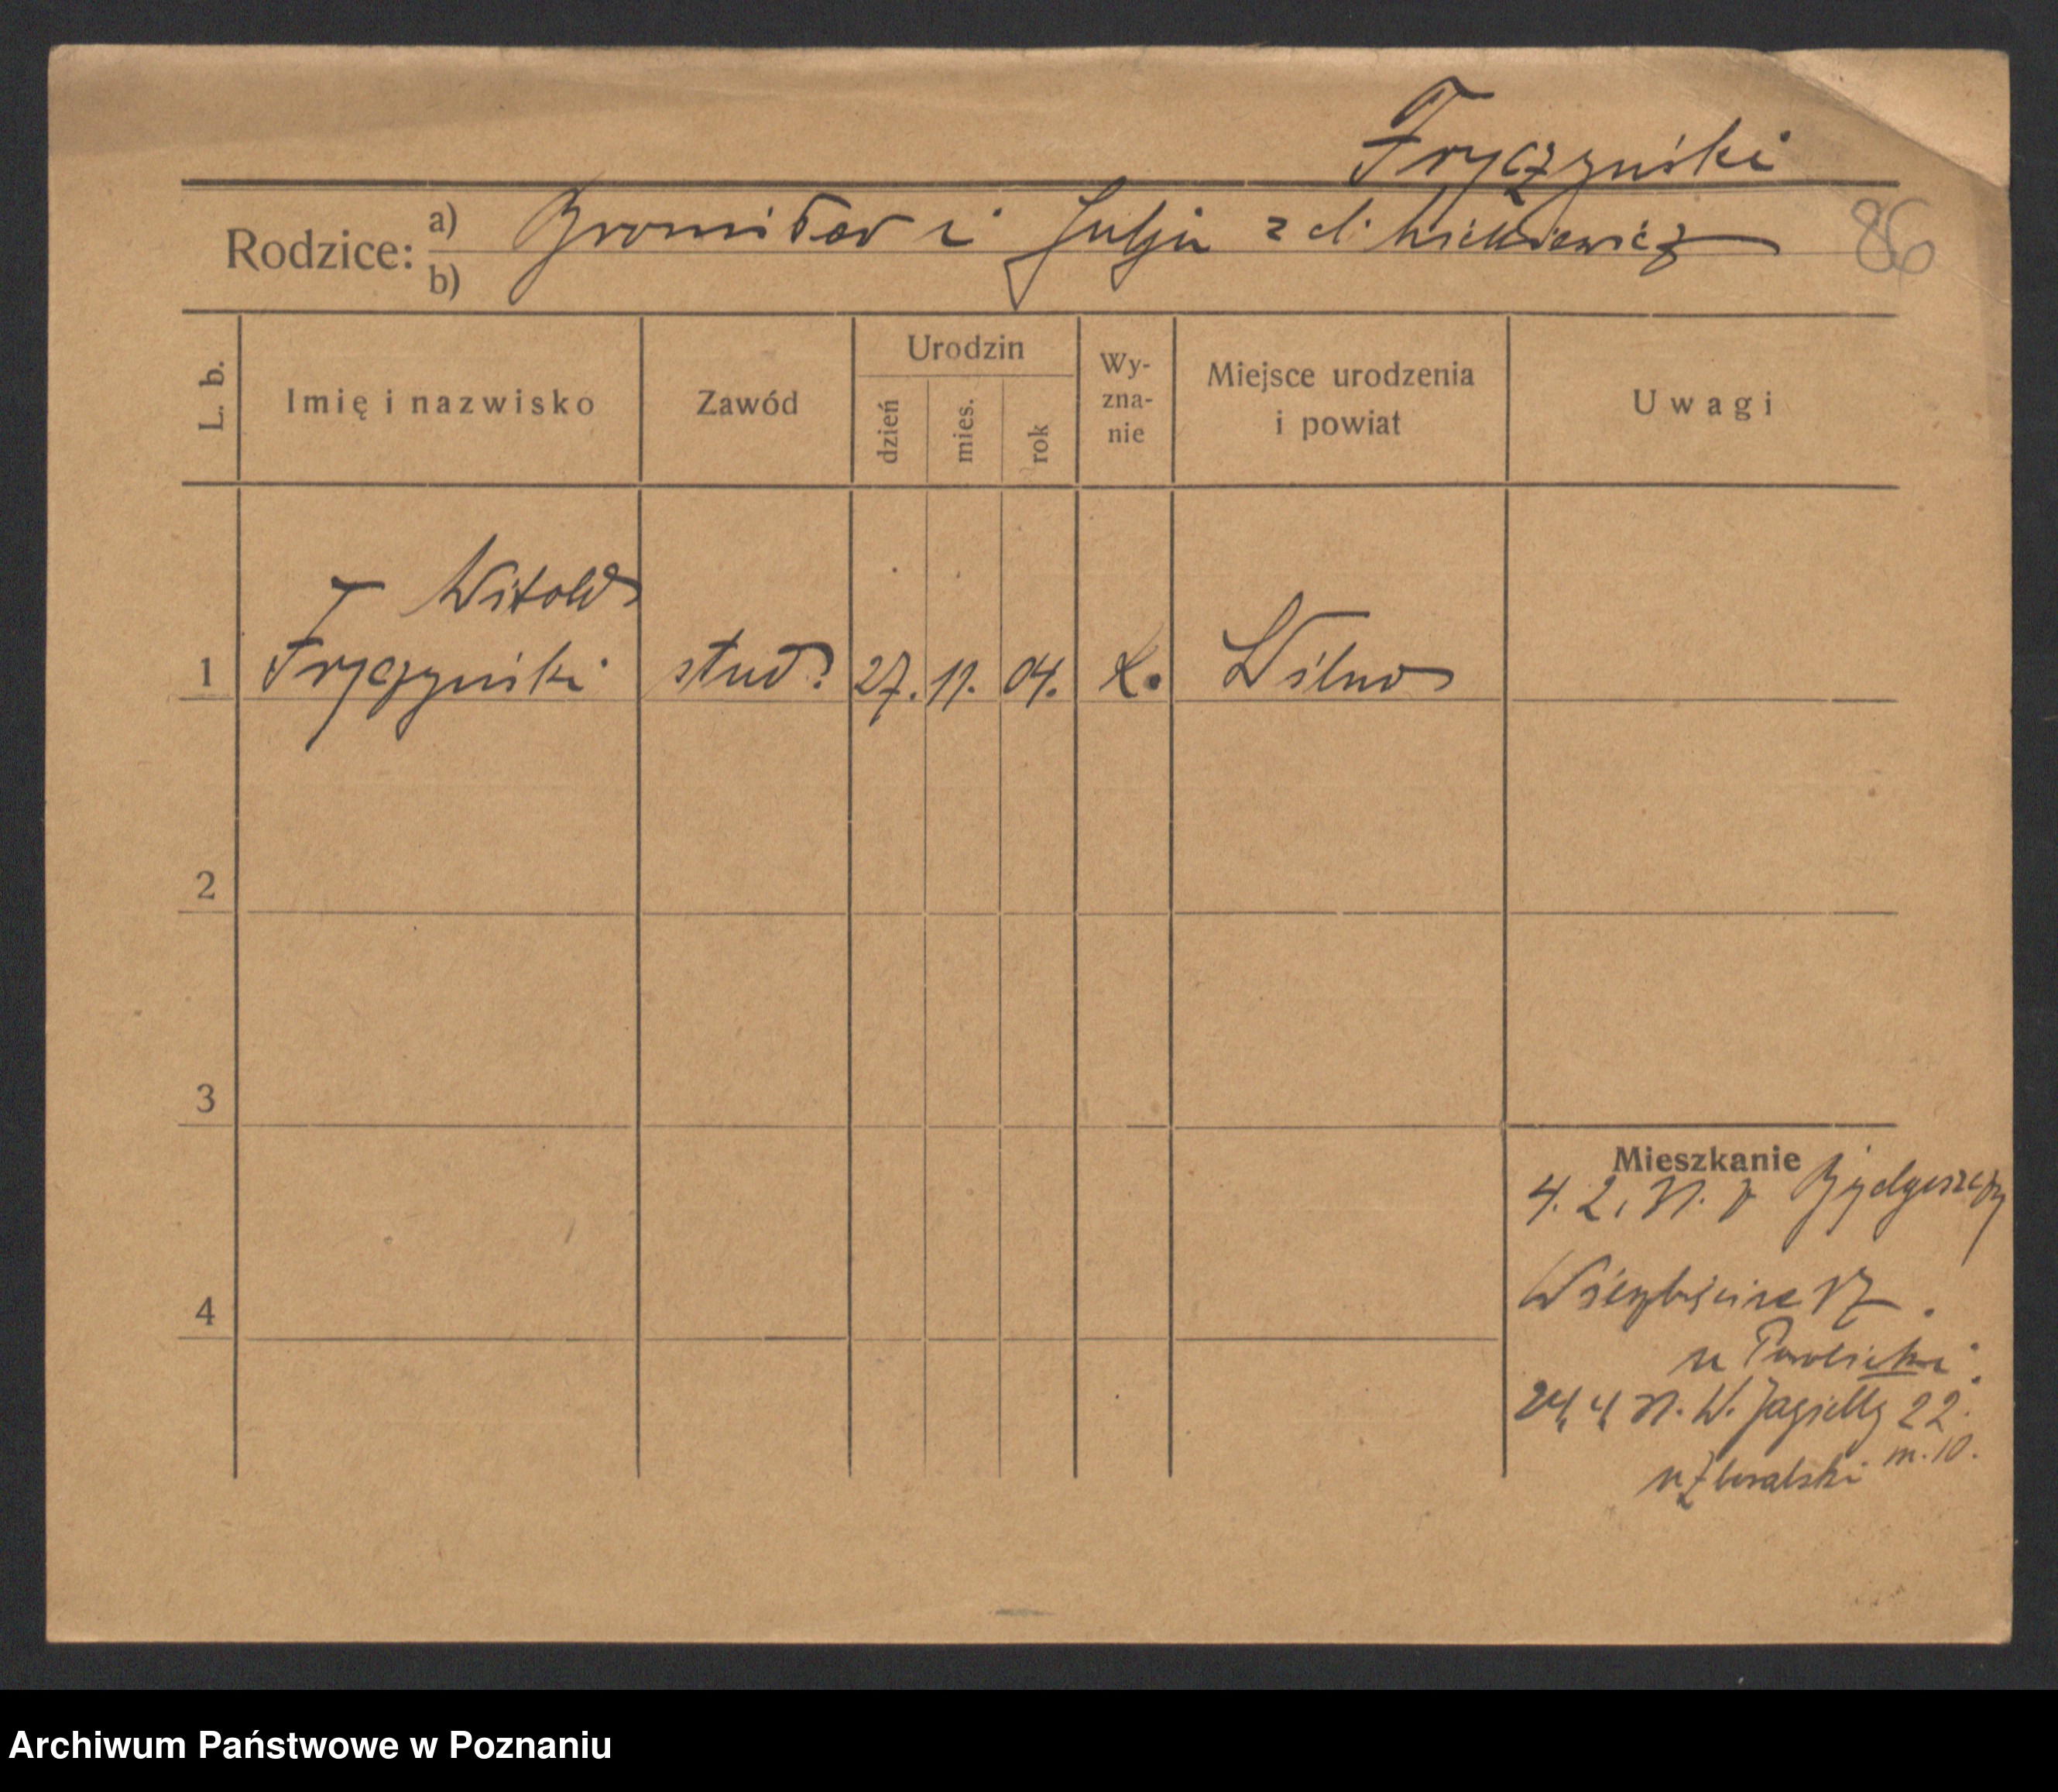 Fryczyński
Rodzice: a) Bronisław i Julja z d. Mickiewicz 86
b)
L. b.
Imię i nazwisko
Zawód
Urodzin
dzień
mies.
rok
Wy-
zna-
nie
Miejsce urodzenia
i powiat
Uwagi
Witold
1 Fryczyński stud. 27. 11. 04. k. Wilno
2
3
4
Mieszkanie
4. 2. Bydgoszczy
Wierzbięcice 17.
u
24. 4. W. Jagiełły 22.
m. 10.
u Zboralski
Archiwum Państwowe w Poznaniu